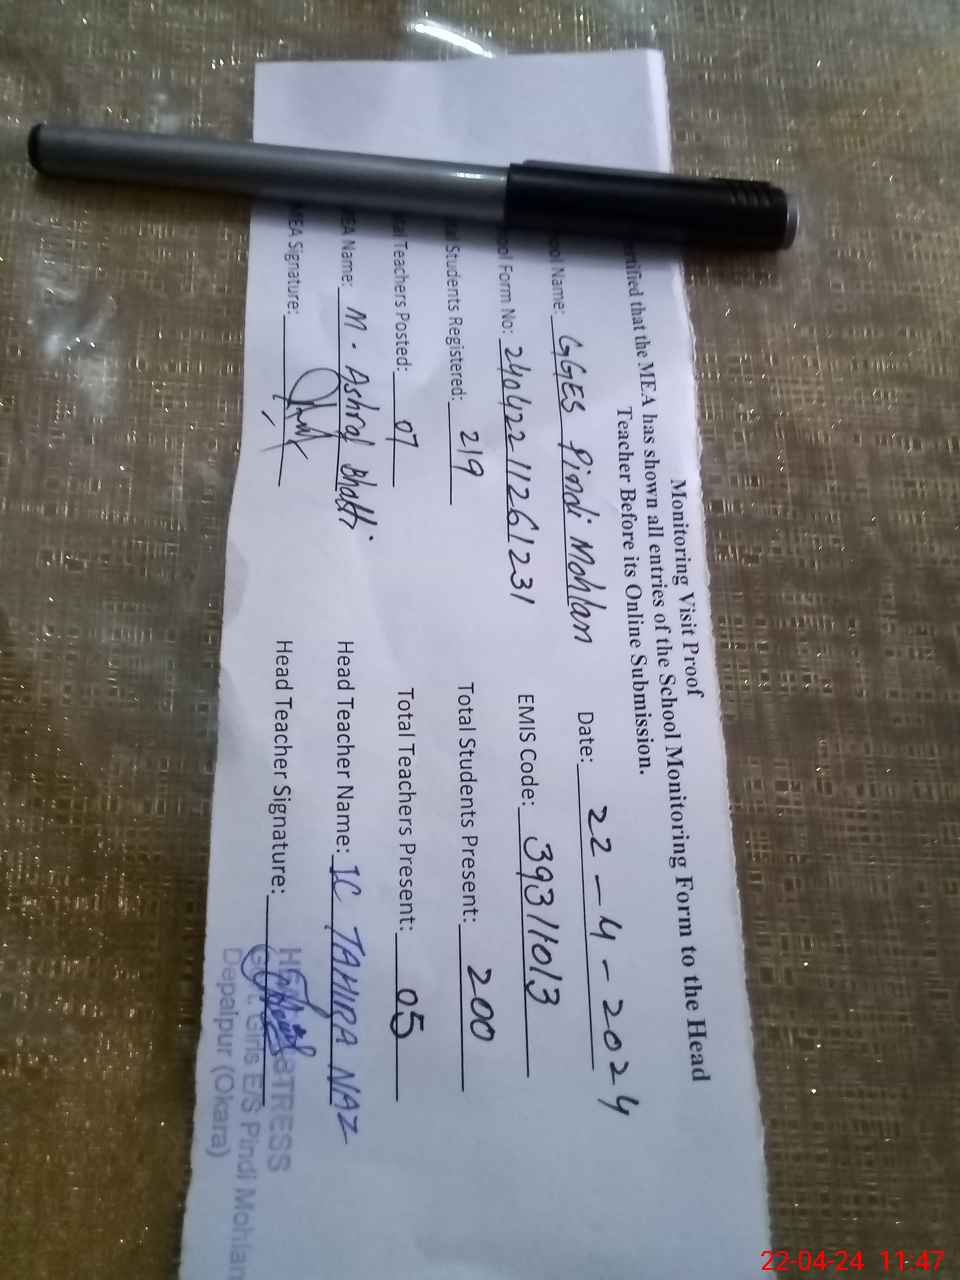 Monitoring Visit Proof
rtified that the MEA has shown all entries of the School Monitoring Form to the Head
Teacher Before its Online Submission.
ool Name: GGES Pindi Mohlan Date: 22-4-2024
ool Form No: 240422 11261231 EMIS Code: 39311013
Students Registered: 219 Total Students Present: 200
al Teachers Posted: 07 Total Teachers Present: 05
EA Name: M. Ashraf Bhatti Head Teacher Name: IC TAHIRA NAZ
MEA Signature: Head Teacher Signature:
TRESS
Girls E/S Pindi Mohlan
Depalpur (Okara)
22-04-24 11:47